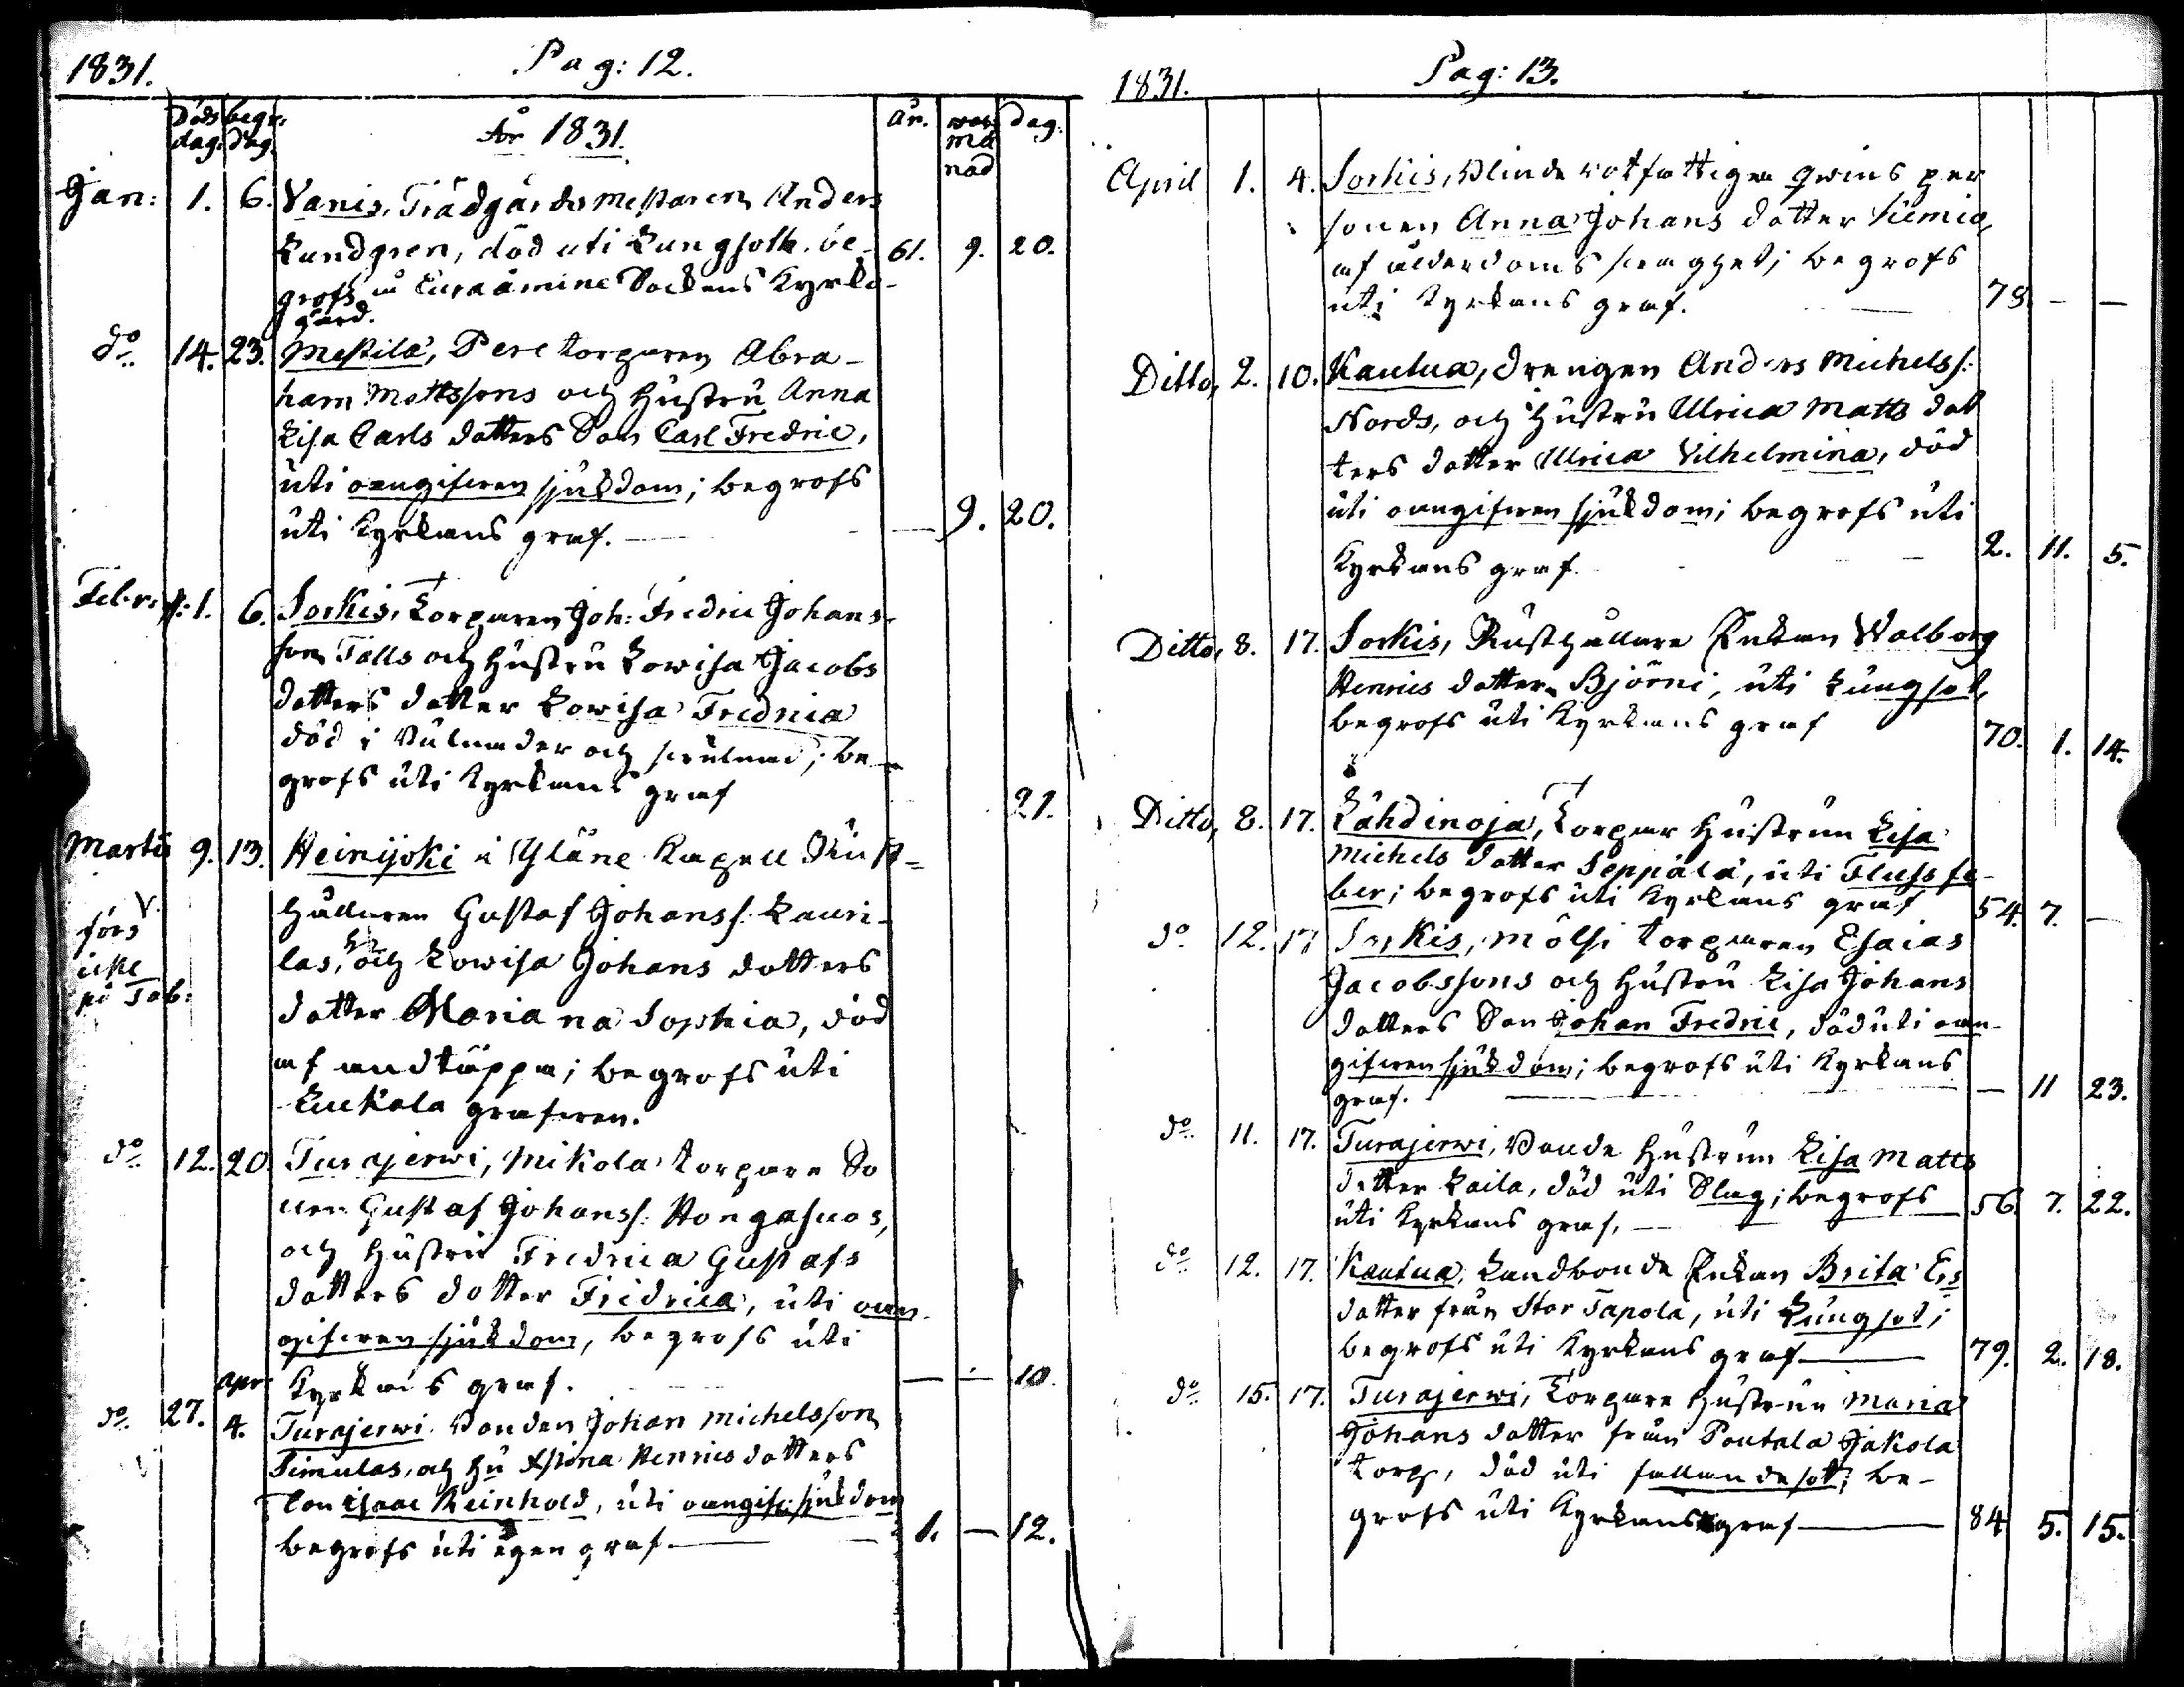 1831.
Pag: 12.
Döds dag. begr: dag.
År 1831.
år. må nad dag.
Jan: 1. 6. Vanis, Trädgårds mestaren Anders
Lundgren, död uti Lungsoth. be- 61. 9. 20.
grofs å Euraåminne Sockens Kyrko-
gård.
do 14. 23. Mestilä, Pere torparen Abra-
ham Mattssons och Hustru Anna
Lisa Carls dotters Son Carl Fredric,
uti oangifven sjukdom; begrofs
uti Kyrkans graf. — — 9. 20.
Febr: 1. 6. Sorkis, Torparen Joh: Fredric Johans-
son Tälls och Hustru Lowisa Jacobs
dotters dotter Lowisa Fredrica
död i Bulnader och swulnad; be-
grofs uti Kyrkans graf 21.
Martii 9. 13. Heinijoki i Yläne Kapell Rust-
hållaren Gustaf Johanss: Lauri-
las, och Lowisa Johans dotters
dotter Maria na Sophia, död
af andtäppa; begrofs uti
Luckola grafwen.
V.
förs
icke
på Tab:
do 12. 20. Turajerwi, Mikola torpare So
nen Gustaf Johanss: Hongasuos,
och Hustru Fredrica Gustafs
dotters dotter Fredrica, uti oan-
gifwen sjukdom, begrofs uti
Kyrkans graf. — — 10.
do 27. apr 4. Turajerwi. Bonden Johan Michelsson
Simulas, och Hu Xstina Henrics dotters
Son Isaac Reinhold, uti oangif: sjukdom
begrofs uti egen graf — 1. — 12.
1831.
Pag: 13.
April 1. 4. Sorkis, Blinde rotfattigen qwins per
sonen Anna Johans dotter Kemia,
af ålderdoms swaghet; begrofs
uti Kyrkans graf. 78 — —
Ditto, 2. 10. Kautua, Drengen Anders Michelss:
Nords, och Hustru Ulrica Matts dot
ters dotter Ulrica Vilhelmina, död
uti oangifwen sjukdom; begrofs uti
Kyrkans graf. — 2. 11. 5.
Ditto, 8. 17. Sorkis, Rusthållare Enkan Walborg
Henrics dotter Björni, uti Lungsot,
begrofs uti Kyrkans graf 70. 1. 14.
Ditto, 8. 17. Lähdinoja, Torpar Hustrun Lisa
Michels dotter Seppälä, uti Flussfe-
ber; begrofs uti Kyrkans graf 54. 7. —
do 12. 17 Sorkis, Mölsi torparen Esaias
Jacobssons och Hustru Lisa Johans
dotters Son Johan Fredric, död uti oan-
gifwen sjukdom; begrofs uti Kyrkans
graf. — — 11 23.
do 11. 17. Turajerwi, Bonde Hustrun Lisa Matts
dotter Laila, död uti Slag; begrofs
uti Kyrkans graf. — 56. 7. 22.
do 12. 17. Kautua, Landbonde Enkan Brita Ers
dotter från Stor Tapola, uti Lungsot;
begrofs uti Kyrkans graf — 79. 2. 18.
do 15. 17. Turajerwi, Torpare Hustrun Maria
Johans dotter från Poutala Jakola
torp, död uti fallandesot; be-
grofs uti Kyrkans graf — 84 5. 15.